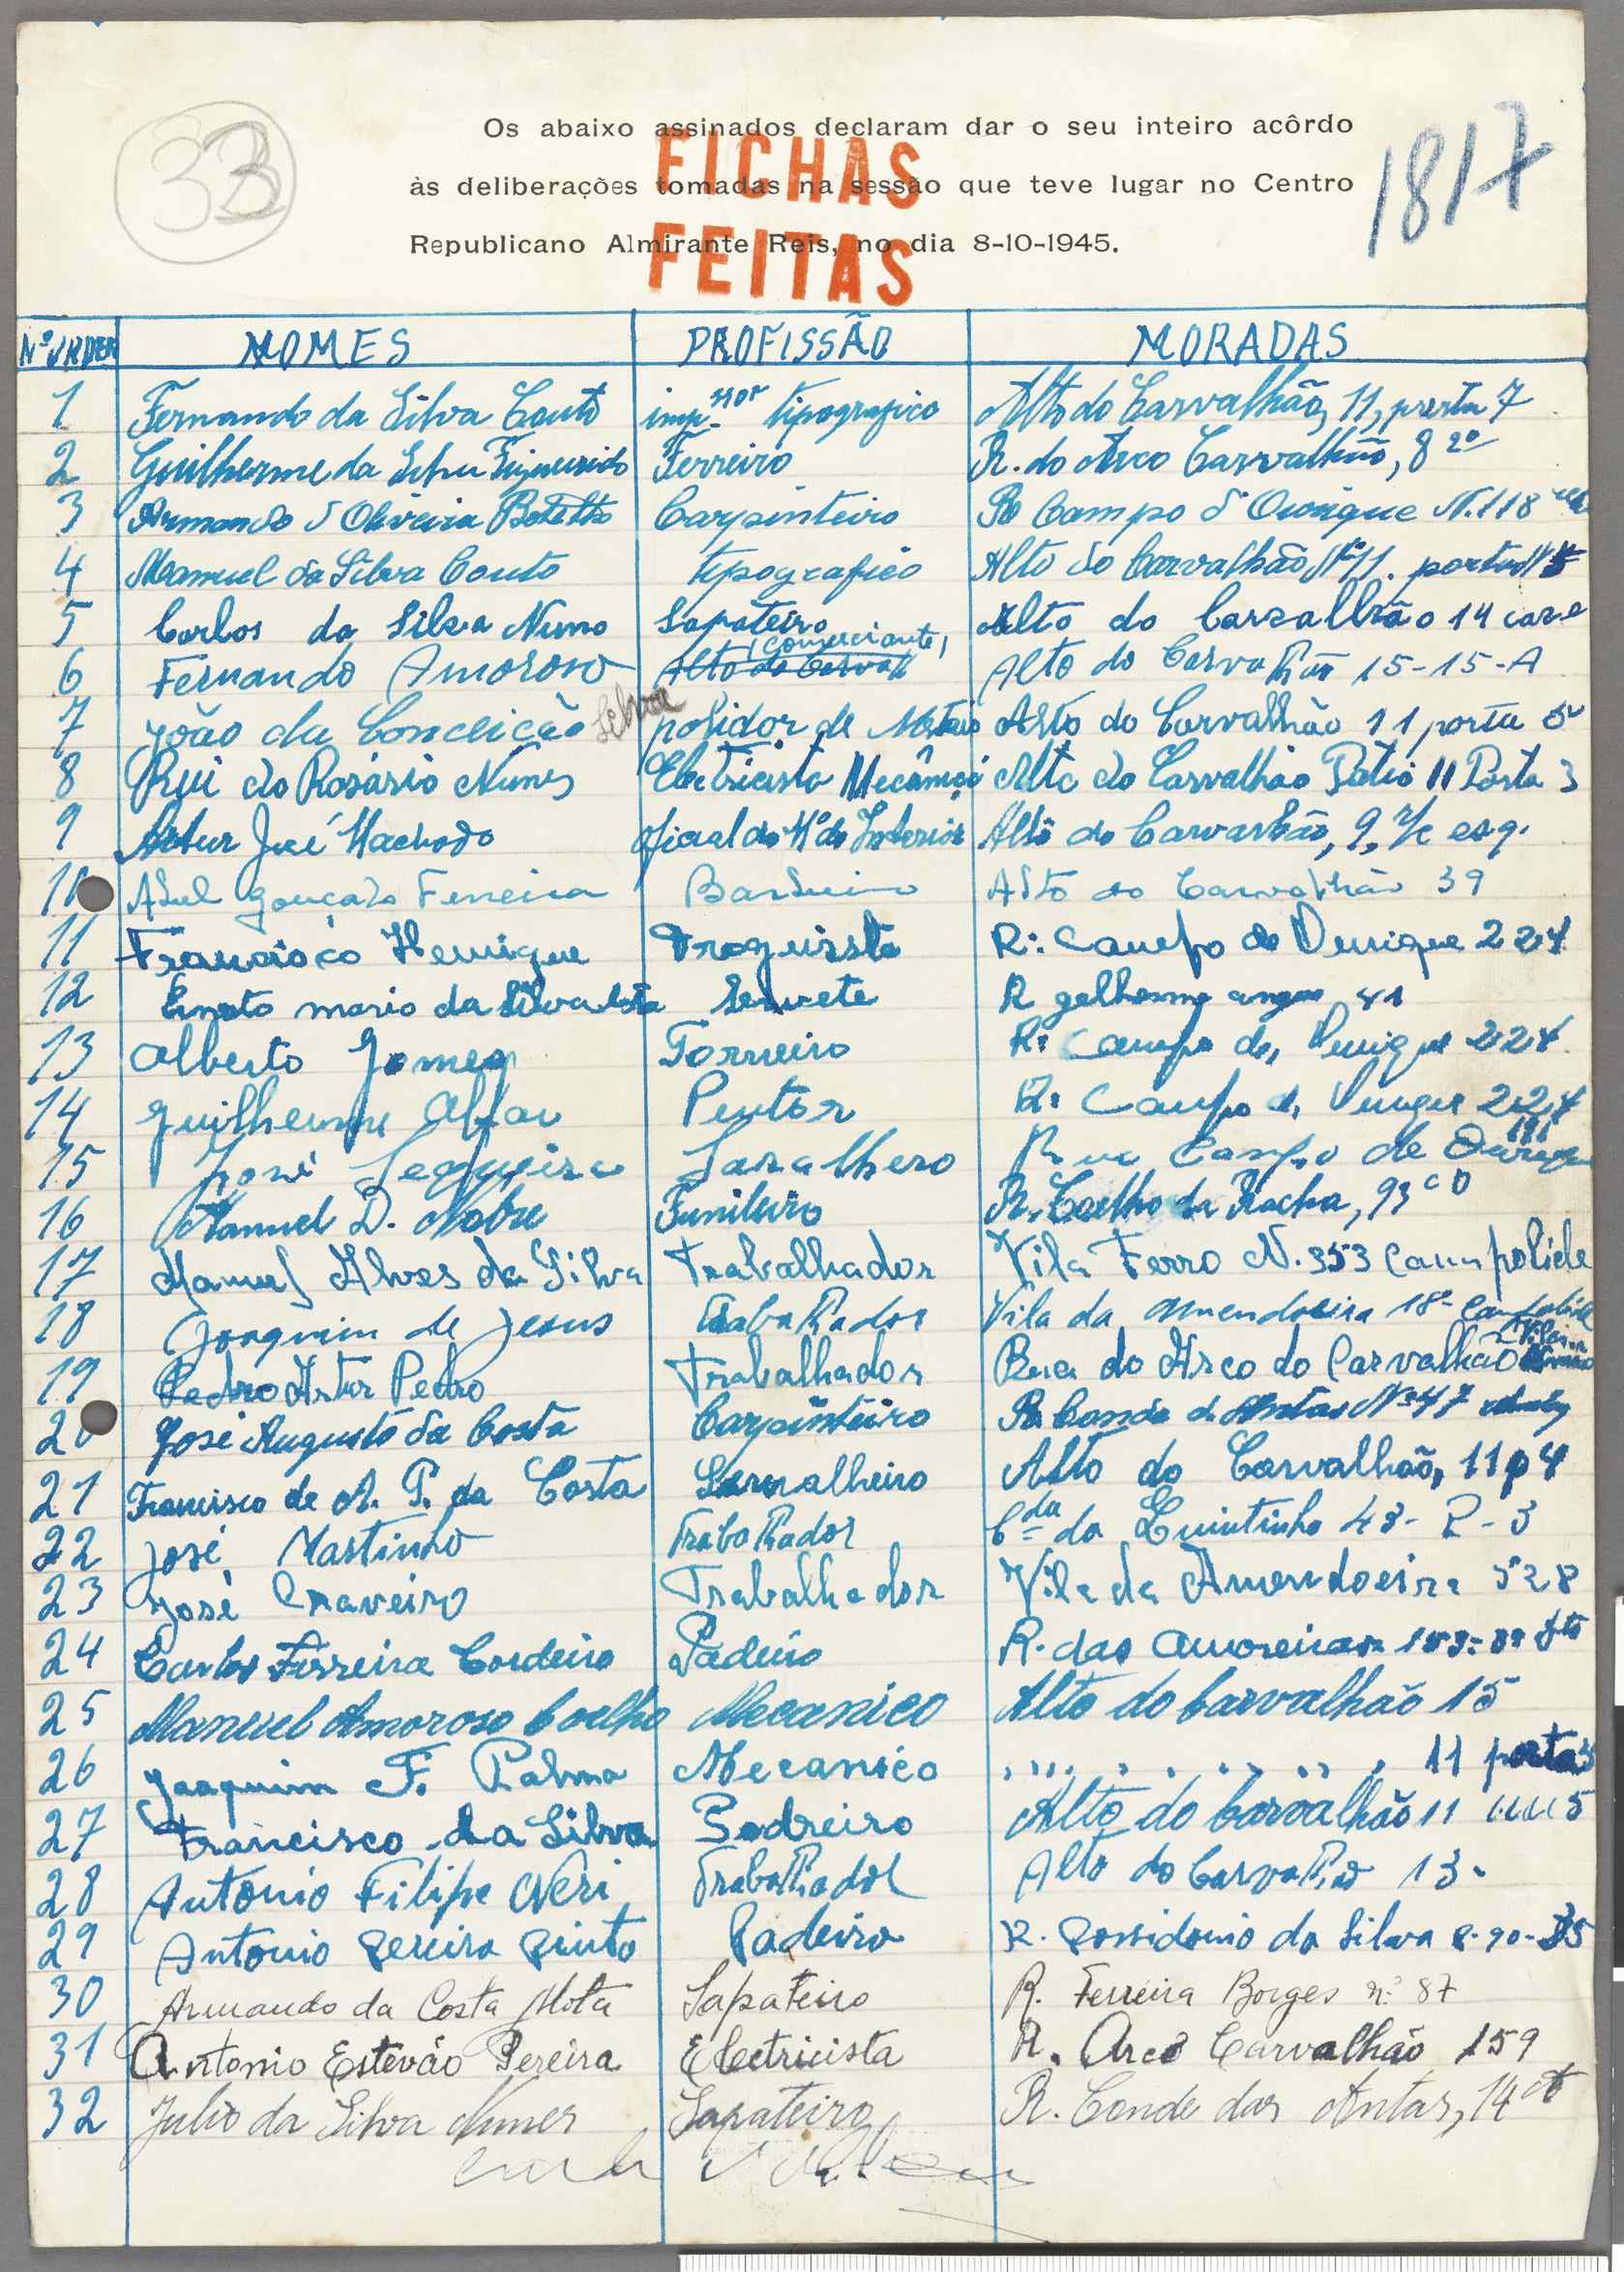 33
1817
Os abaixo assinados declaram dar o seu inteiro acôrdo
às deliberações tomadas na sessão que teve lugar no Centro
Republicano Almirante Reis, no dia 8-10-1945.
FICHAS
FEITAS
Nº ORDEM NOMES PROFISSÃO MORADAS
1 Fernando da Silva Couto imp.sor tipografico Alto do Carvalhão, 11, porta 7
2 Guilherme da Silva Figueiredo Ferreiro R. do Arco Carvalhão, 8 2º
3 Armando d'Oliveira Botelho Carpinteiro R. Campo d'Ourique N. 118
4 Manuel da Silva Couto tipografico Alto do Carvalhão Nº 11. porta
5 Carlos da Silva Nuno Sapateiro Alto do Carvalhão 14 cave
6 Fernando Amoroso Alto do Carvalh (comerciante) Alto do Carvalhão 15-15-A
7 João da Conceição Silva polidor de Metais Alto do Carvalhão 11 porta
8 Rui do Rosário Nunes Electricista Mecânico Alto do Carvalhão Pátio 11 Porta 3
9 Artur José Machado oficial do Mº do Interior Alto do Carvarhão, 9, r/c esq.
10 Abel Gonçalo Ferreira Alto do Carvalhão 39
11 Francisco Henrique Droguista R: Campo de Ourique 224
12 Ernesto mario da Silva Servete R gelherme 41
13 Alberto Gomes Torneiro R: Campo de, Ourique 224
14 Guilherme Pentor R: Campo de, Ourique 224
15 José Segqueira Saralhero Rua Campo de Ourique 191
16 Manuel D. Nobre Funileiro R. Coelho da Rocha, 93 c D
17 Manuel Alves da Silva Trabalhador Vila Ferro N. 353 Campolide
18 Joaquim de Jesus Trabalhador Vila da Amendoeira 18- Campolide
19 Pedro Artur Pedro Trabalhador Rua do Arco do Carvalhão
20 José Augusto da Costa Carpinteiro R. Conde de Antas Nº 47
21 Francisco de A. P. da Costa Serralheiro Alto do Carvalhão, 11 p 4
22 José Mastinho Trabalhador Cda da Quintinha 43- P-3
23 José Craveiro Trabalhador Vila da Amendoeira 528
24 Carlos Ferreira Cordeiro Padeiro R. das Amoreiras
25 Manuel Amoroso Coelho Mecanico Alto do Carvalhão 15
26 Joaquim F. Palma Mecanico " " " 11 porta 3
27 Francisco da Silva Pedreiro Alto do Carvalhão 11 5
28 Antonio Filipe Neri Trabalhador Alto do Carvalhão 13-
29 Antonio Pereira Pinto Padeiro R. Possidonio da Silva
30 Armando da Costa Mota Sapateiro R. Ferreira Borges nº 87
31 Antonio Estevão Pereira Electricista R. Arco Carvalhão 159
32 Julio da Silva Nunes Sapateiro R. Conde das Antas, 14